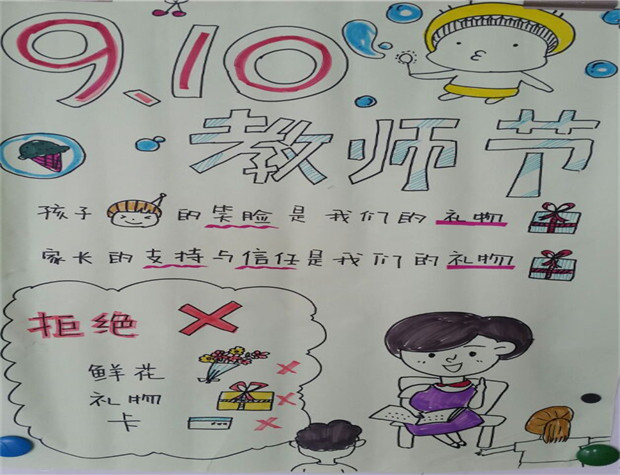 9.10
教师节
孩子的笑脸是我们的礼物
家长的支持与信任是我们的礼物
拒绝
鲜花
礼物
卡